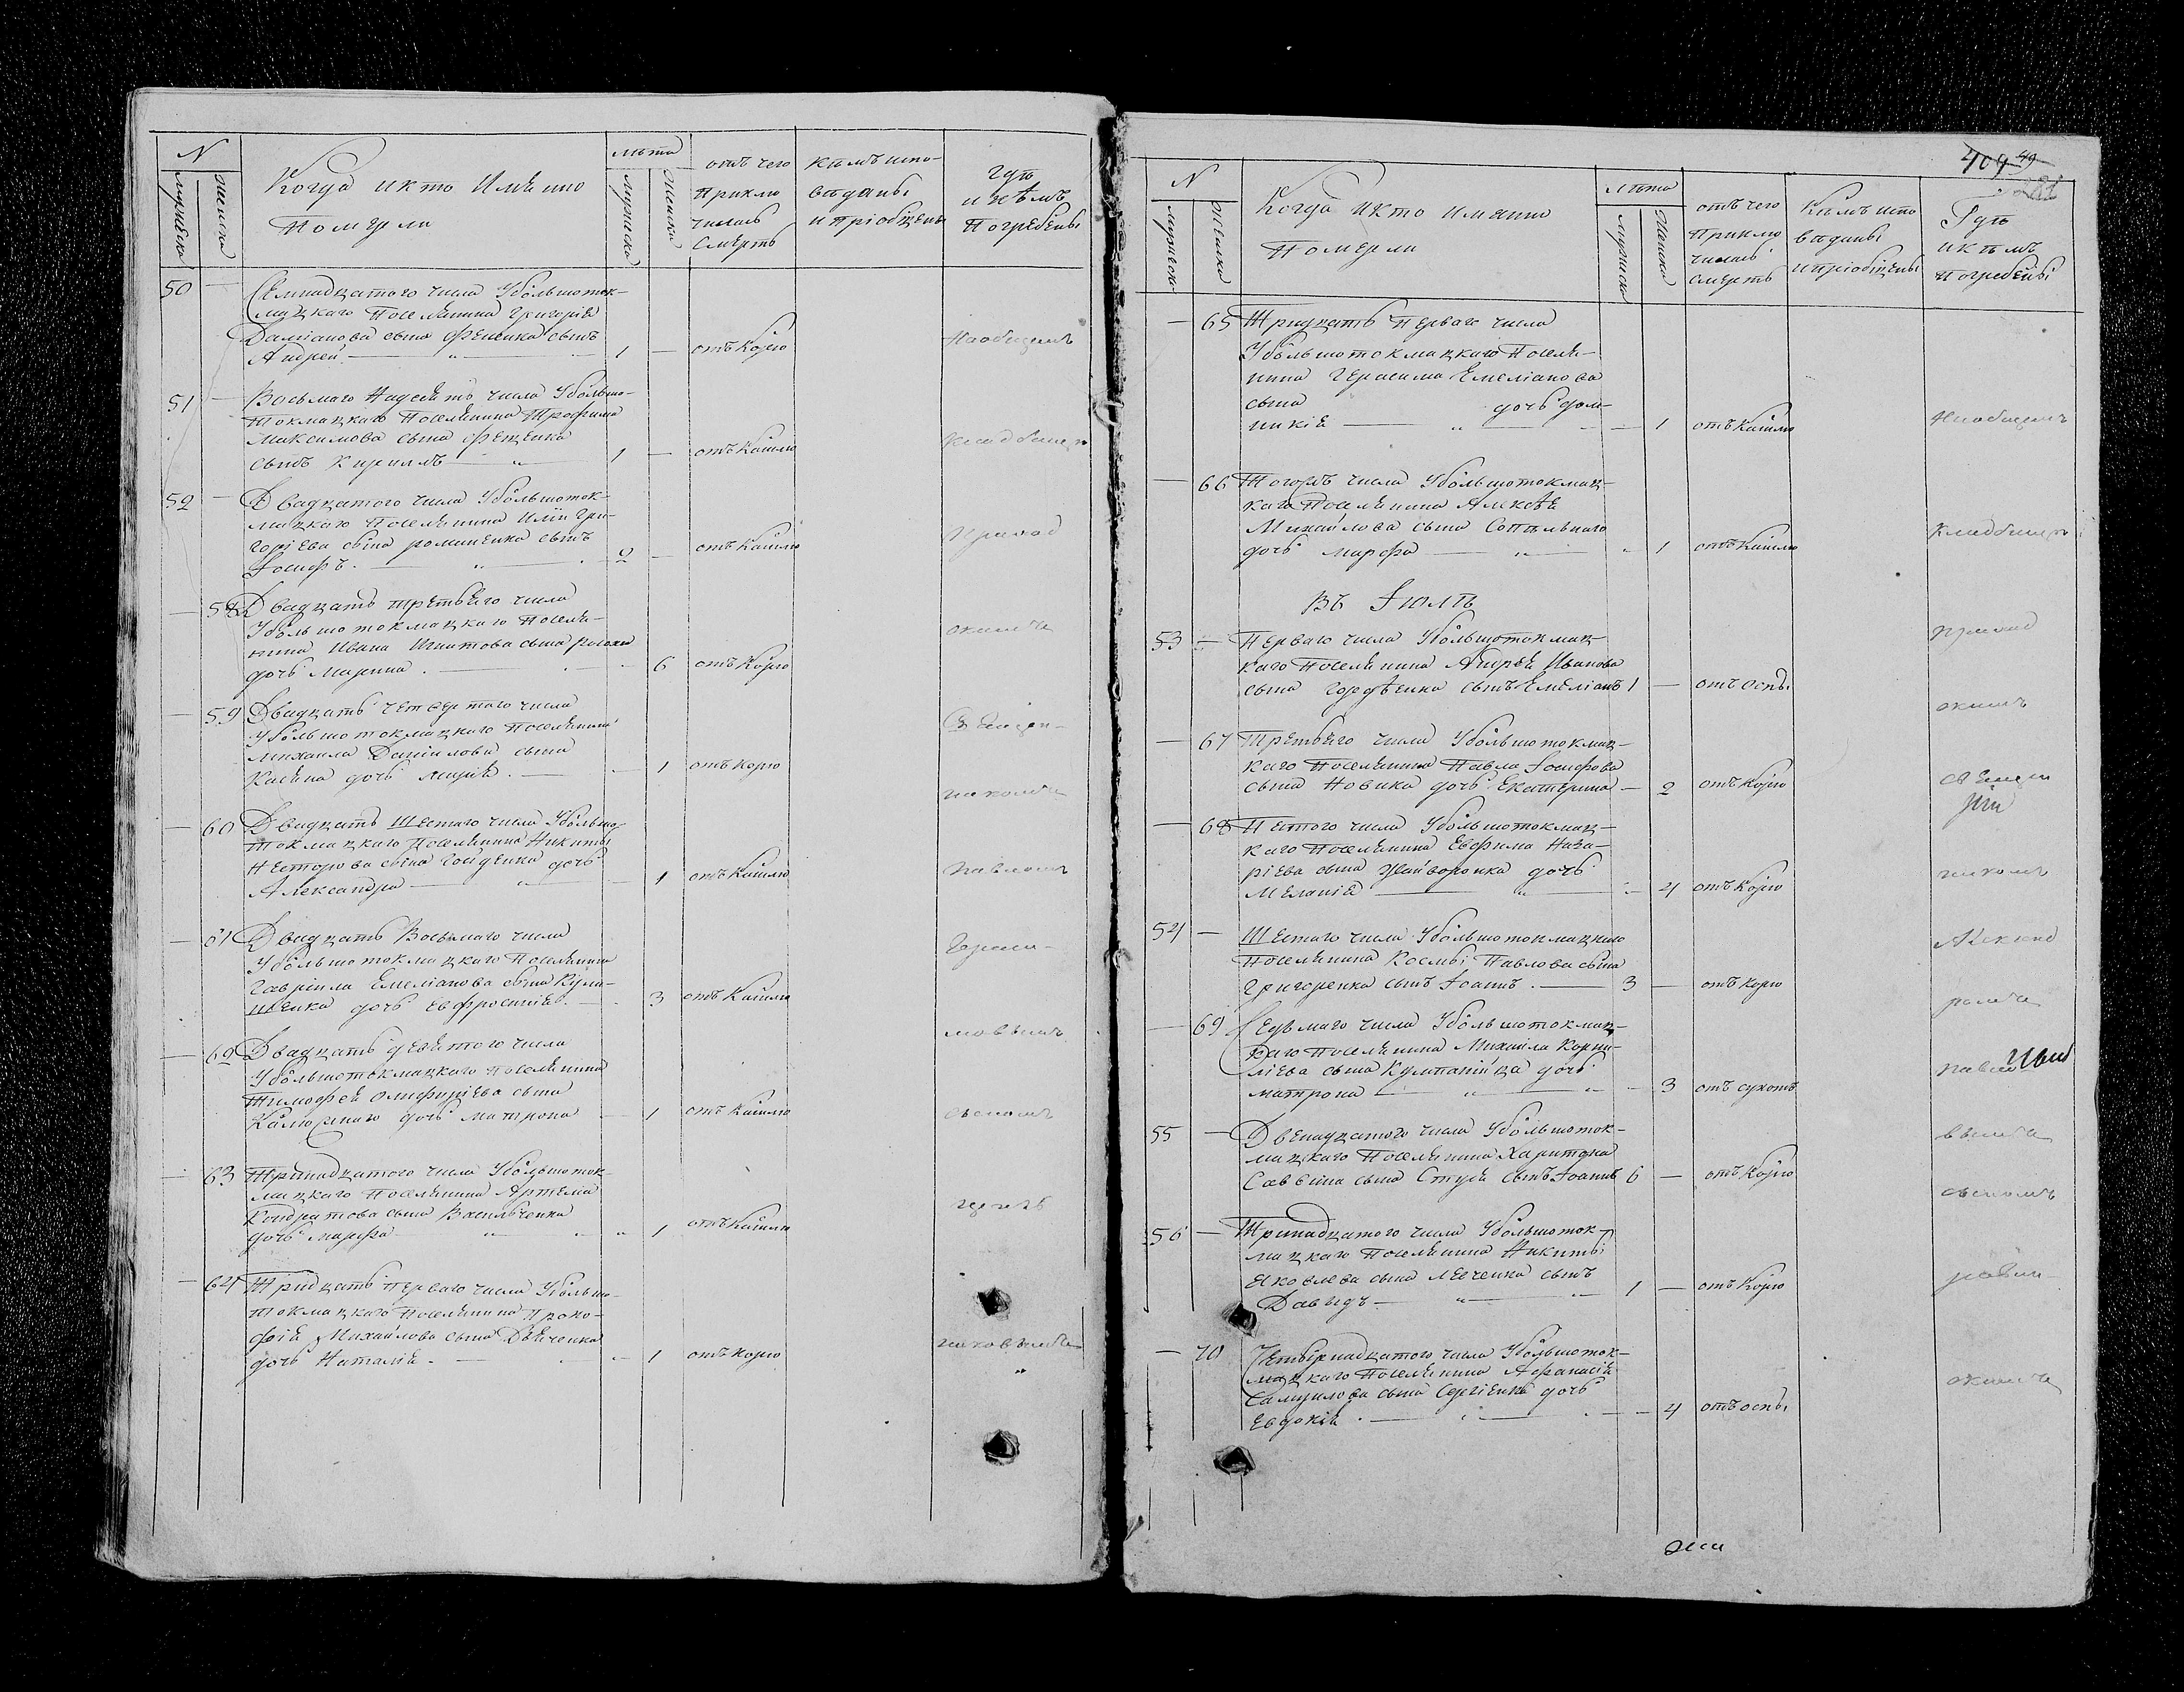 N
мужеска
женска
Когда и кто Имянно
Померли
лѣта
мужеска
женска
отъ чего
Приклю
чилась
Смерть
кѣмъ испо-
веданы
и приобщены
гдѣ
и кѣмъ
Погребены
50 — Семнадцатого числа Убольшоток-
мацкаго Поселянина Григорія
Даміанова сына сынъ
Андрей — 1 — отъ Корю
На общемъ
51 — Восьмаго Надесять числа Убольшо-
токмацкаго Поселянина Трофима
Максимова сына Феценка
сынъ Кирилъ — 1 — отъ Кашлю
кладбищѣ
52 — Двадцатого числа Убольшоток-
мацкаго Поселянина Иліи Гри-
горіева сына роминенка сынъ
Іосифъ. — 2 — отъ Кашлю
Приход
— 58 Двадцать третьяго числа
Убольшотокмацкаго Поселя-
нина Ивана Игнатова сына
дочь Марина. — 6 отъ Корю
скимъ
— 59 Двадцать четвертого числа
Убольшотокмацкаго Поселянина
Михаила Даніилова сына
дочь Марія. — 1 отъ Корю
Священ-
никомъ
— 60 Двадцать Шестаго числа Убольшо-
токмацкаго Поселянина Никиты
Несторова сына Гойденка дочь
Александра — 1 отъ Кашлю
Павломъ
— 61 Двадцать Восьмаго числа
Убольшотокмацкаго Поселянина
Гавріила Емеліанова сына Кули-
шенка дочь Евфросинія. — 3 отъ Кашлю
Гераси-
мовымъ
— 62 Двадцать девятого числа
Убольшотокмацкаго Поселянина
Тимофея Онифиріева сына
Калюжнаго дочь Матрона — 1 отъ Кашлю
съ
— 63 Тринадцатого числа Убольшоток-
мацкаго Поселянина Артемія
Кондратова сына Васильченка
дочь Марфа — 1 отъ Кашлю
— 64 Тридцать Перваго числа Убольшо-
токмацкаго Поселянина Проко-
фія Михайлова сына Дяченка
дочь Наталія. — 1 отъ Корю
409 49
N
мужеска
женска
Когда и кто имянно
Померли
лѣта
мужеска
женска
отъ чего
Приклю
чилась
смерть
Кѣмъ испо
веданы
и приобщены
Гдѣ
и кѣмъ
погребены
— 65 Тридцать Перваго числа
Убольшотокмацкаго Поселя-
нина Герасима Емеліанова
сына дочь Дом-
никія — 1 отъ Кашлю
На общемъ
— 66 Тогожъ числа Убольшотокмац-
каго Поселянина Алексѣя
Михайлова сына Сопильнаго
дочь Марфа — 1 отъ Кашлю
Кладбищѣ
Въ Іюлѣ
53 — Перваго числа Убольшотокмац-
каго Поселянина Андрея Иванова
сына Гордѣенка сынъ Емеліанъ 1 — отъ оспы
Приход
скимъ
— 67 Третьяго числа Убольшотокмац-
каго Поселянина Павла Іосифова
сына Новика дочь Екатерина — 2 отъ Корю
Священ
— 68 Пятого числа Убольшотокмац-
каго Поселянина Евфима Наза-
ріева сына Жайворонка дочь
Меланія — 4 отъ Корю
никомъ
54 — Шестаго числа Убольшотокмацкаго
Поселянина Космы Павлова сына
Григоренка сынъ Іоаннъ. — 3 — отъ Корю
— 69 Седьмаго числа Убольшотокмац-
каго Поселянина Михаила Корни-
ліева сына Кумпанійца дочь
Матрона — 3 отъ сухотъ
55 — Двенадцатого числа Убольшоток-
мацкаго Поселянина Харитона
Саввина сына Стуся сынъ Іоаннъ 6 — отъ Корю
56 — Тринадцатого числа Убольшоток-
мацкаго Поселянина Никиты
Яковлева сына Левченка сынъ
Давыдъ — 1 — отъ Корю
— 70 Четырнадцатого числа Убольшоток-
мацкаго Поселянина Афанасія
Самуилова сына Сергіенка дочь
Евдокія. — 4 отъ оспы